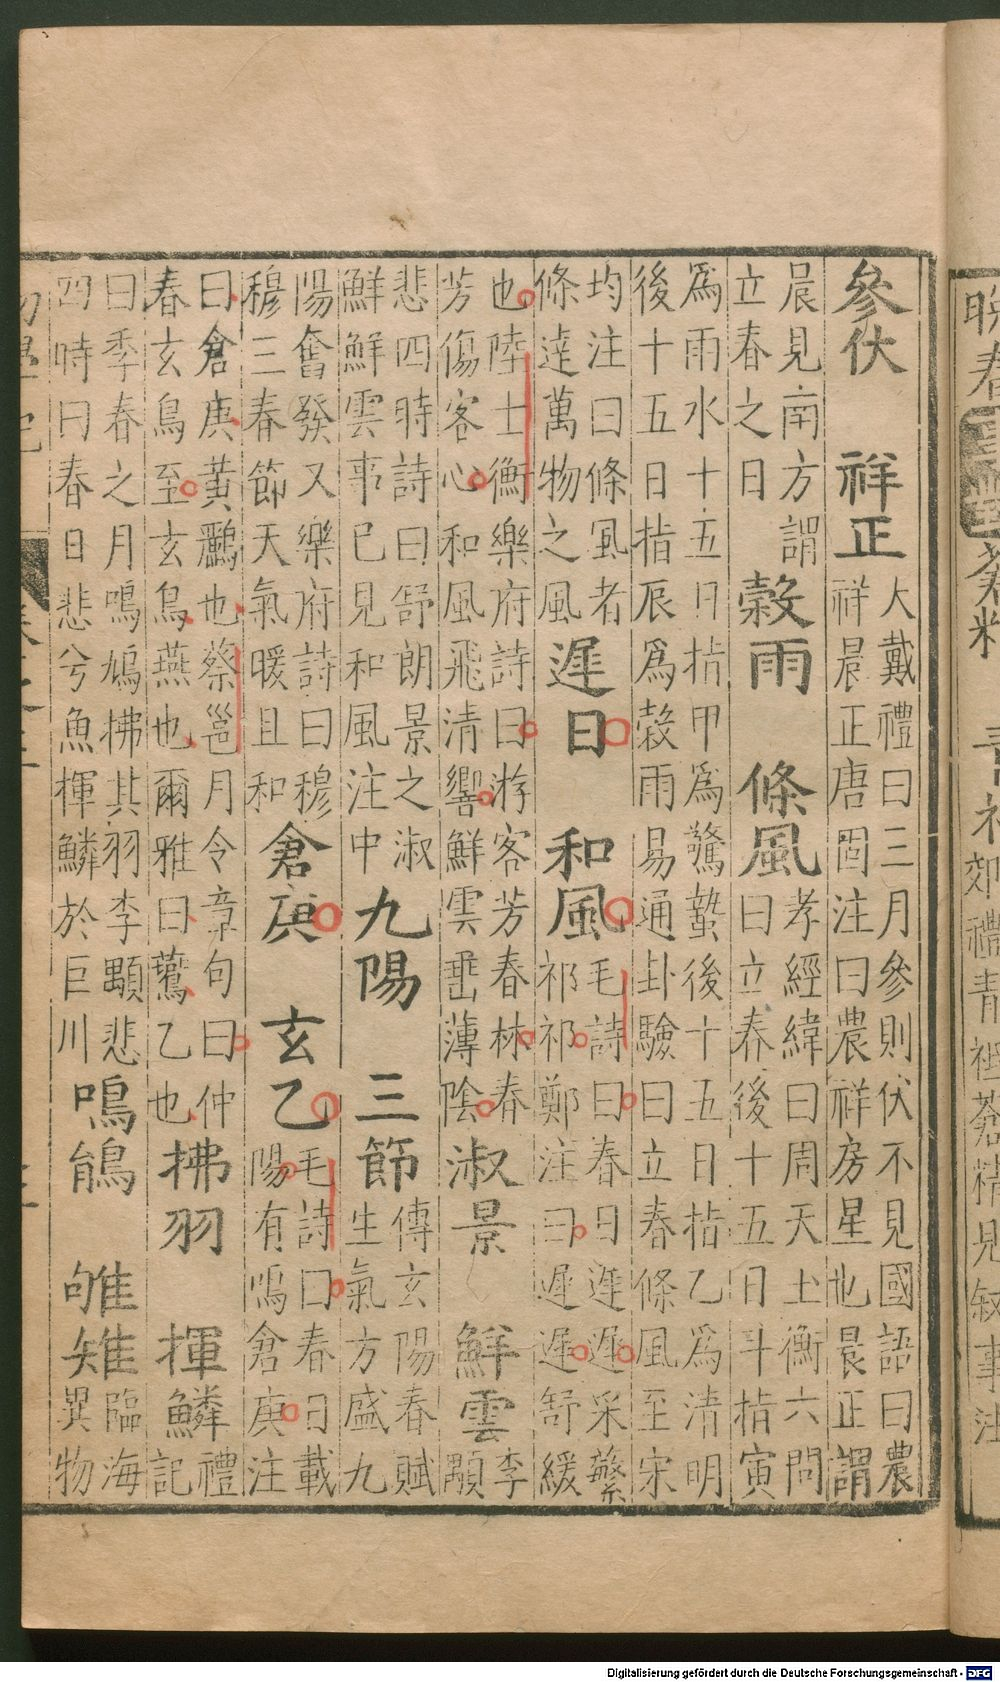 晚春 事對 青祀 郊禮青祖蒼精見敘事注
參伏 祥正
大戴禮曰三月參則伏不見國語曰農
祥晨正唐固注曰農祥房星也晨正謂
晨見南方謂
立春之日
榖雨 條風
孝經緯曰周天土衡六問
曰立春後十五日斗指寅
爲雨水十五日指甲爲驚蟄後十五日指乙爲清明
後十五日指辰爲榖雨易通卦驗曰立春條風至宋
均注曰條風者
條達萬物之風
遲日 和風
毛詩曰春日遲遲采蘩
祁祁鄭注曰遲遲舒緩
也陸士衡樂府詩曰游客芳春林春
芳傷客心和風飛清響鮮雲垂薄陰
淑景 鮮雲
李
顒
悲四時詩曰舒朗景之淑
鮮鮮雲事已見和風注中
九陽 三節
傅玄陽春賦
生氣方盛九
陽奮發又樂府詩曰穆
穆三春節天氣暖且和
倉庚 玄乙
毛詩曰春日載
陽有鳴倉庚注
曰倉庚黃鸝也蔡邕月令章句曰仲
春玄鳥至玄鳥燕也爾雅曰鳦乙也
拂羽 揮鱗
禮
記
曰季春之月鳴鳩拂其羽李顒悲
四時曰春日悲兮魚揮鱗於巨川
鳴鵃 雊雉
臨海
異物
Digitalisierung gefördert durch die Deutsche Forschungsgemeinschaft - DFG